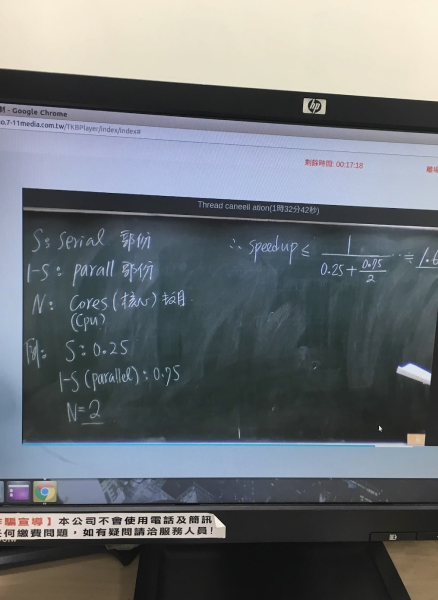 - Google Chrome
o.7-11media.com.tw/TKBPlayer/index/index#
剩餘時間: 00:17:18
離場
Thread caneell ation(1時32分42秒)
S: Serial 部份
1-S: parall 部份
N: Cores (核心) 數目
(Cpu)
S: 0.25
1-S (parallel): 0.75
N=2
∴ speedup ≤ 1 / (0.25 + 0.75/2) ≒ 1.6
hp
騙宣導】本公司不會使用電話及簡訊
任何繳費問題,如有疑問請洽服務人員!